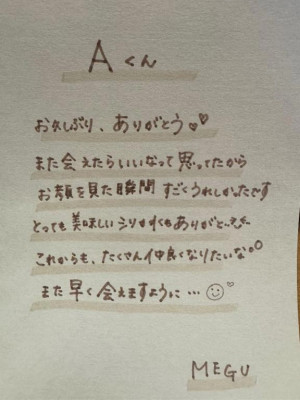 Aくん
お久しぶり、ありがとう♡♡
また会えたらいいなって思ってたから
お顔を見た瞬間 すごくうれしかったです
とっても美味しい ありがとう
これからも、たくさん仲良くなりたいな。
また早く会えますように…☺♡
MEGU